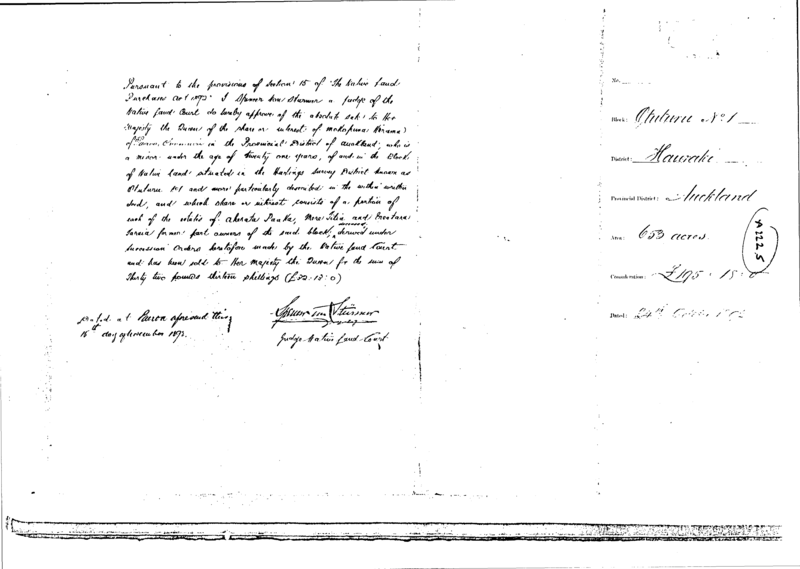 Pursuant to the provisions of Section 15 of "The Native Land
Purchase Act 1892" I Spencer von Sturmer a Judge of the
Native Land Court do hereby approve of the absolute sale to Her
Majesty the Queen of the share or interest of
of in the Provincial District of Auckland, who is
a minor under the age of twenty one years, of and in the Block
of Native Land situated in the Hastings Survey District known as
Otuturu No1 and more particularly described in the within written
deed, and which share or interest consists of a portion of
each of the estates of and
former part owners of the said block, derived under
succession orders heretofore made by the Native Land Court
and has been sold to Her Majesty the Queen for the sum of
Thirty two pounds thirteen shillings (£32:13:0)
Dated at Paeroa aforesaid this
15th day of November 1893.
Spencer von Sturmer
Judge Native Land Court
No.
Block: Otuturu No 1
District: Hauraki
Provincial District: Auckland
Area: 653 acres.
A1225
Consideration: £195 . 18 . 0
Dated: 24th